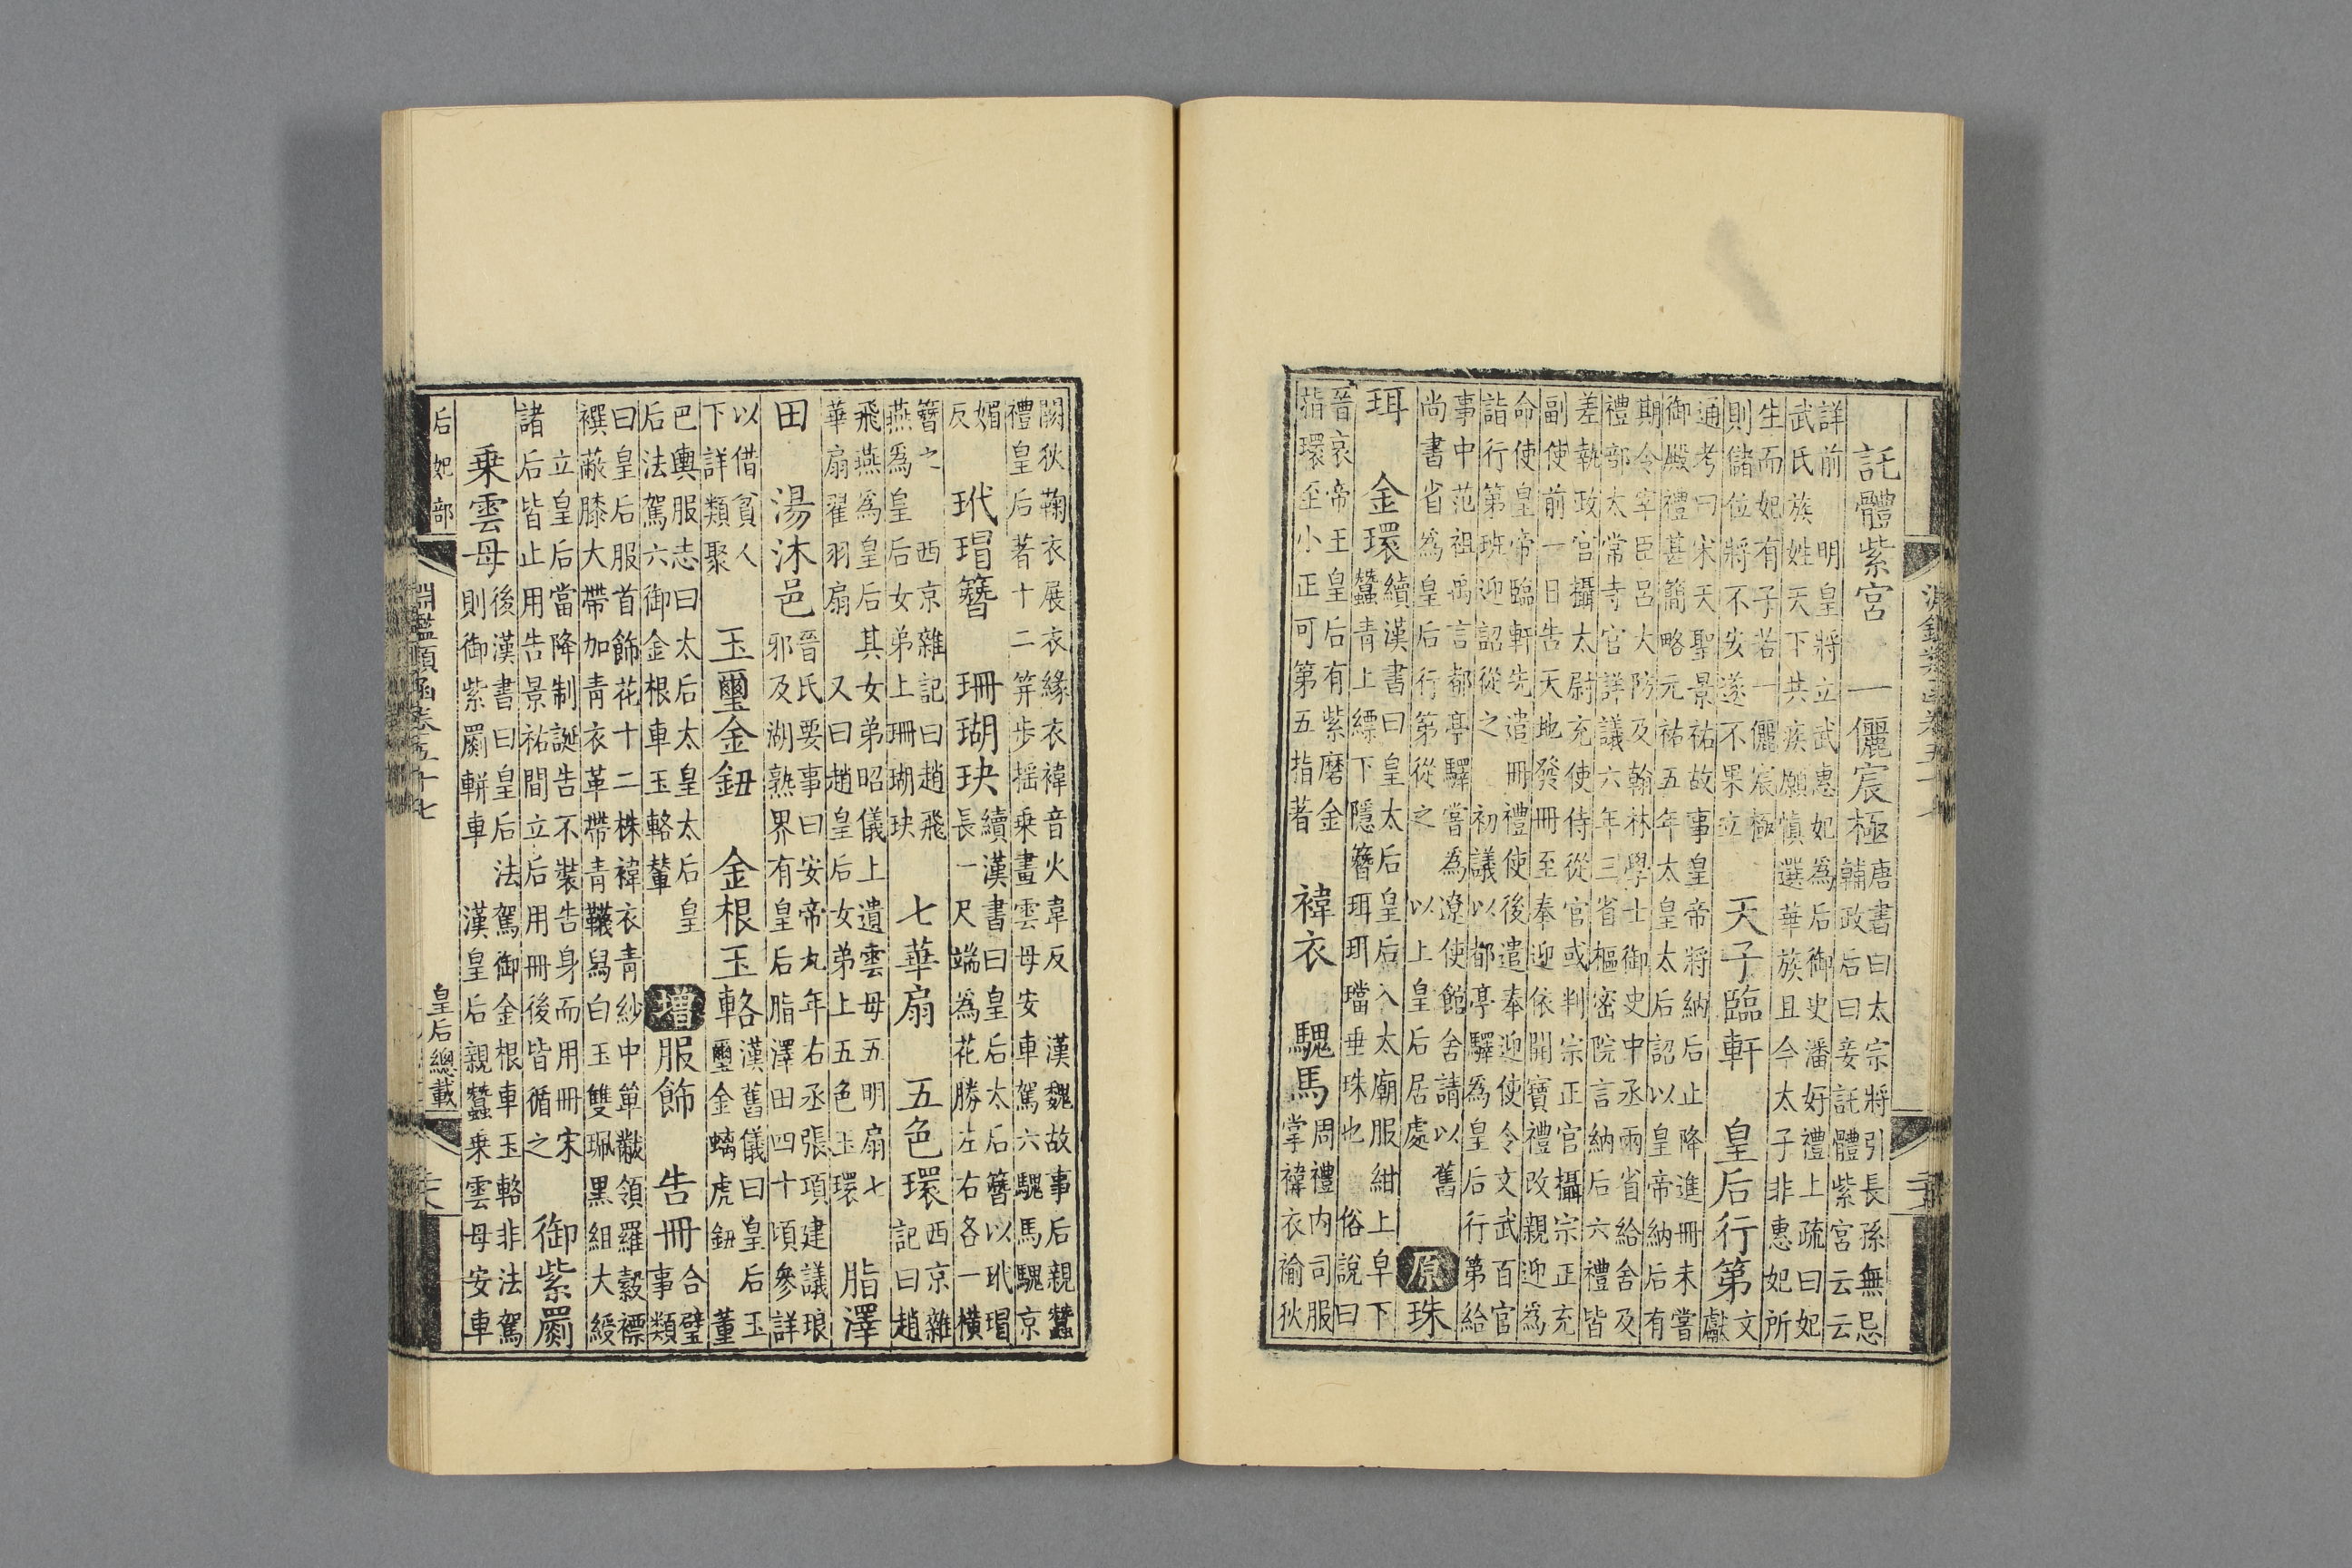 託體紫宮　一儷宸極　唐書曰太宗將引長孫無忌
輔政后曰妾託體紫宮云云
詳前　明皇將立武惠妃為后御史潘好禮上疏曰妃
武氏族姓天下共疾願慎選華族且今太子非惠妃所
生而妃有子若一儷宸極
則儲位將不安遂不果立　天子臨軒　皇后行第　文獻
通考曰宋天聖景祐故事皇帝將納后止降進冊未嘗
御殿禮甚簡略元祐五年太皇太后詔以皇帝納后有
期令宰臣呂大防及翰林學士御史中丞兩省給舍及
禮部太常寺官詳議六年三省樞密院言納后六禮皆
差執政官攝太尉充使侍從官或判宗正官攝宗正充
副使前一日告天地發冊至奉迎依開寶禮改親迎為
命使皇帝臨軒先遣冊禮使後遣奉迎使令文武百官
詣行第班迎詔從之　初議以都亭驛為皇后行第給
事中范祖禹言都亭驛嘗為遼使館舍請以舊
尚書省為皇后行第從之　以上皇后居處　原珠
珥　金環　續漢書曰皇太后皇后入太廟服紺上皁下
蠶青上縹下隱簪珥珥璫垂珠也　俗說曰
晉哀帝王皇后有紫磨金
指環至小正可第五指著　褘衣　騩馬　周禮內司服
掌褘衣褕狄
闕狄鞠衣展衣緣衣褘音火韋反　漢魏故事后親蠶
禮皇后著十二笄步搖乘畫雲母安車駕六騩馬騩京
媚反　玳瑁簪　珊瑚玦　續漢書曰皇后太后簪以玳瑁
長一尺端為花勝左右各一橫
簪之　西京雜記曰趙飛
燕為皇后女弟上珊瑚玦　七華扇　五色環　西京雜記曰趙
飛燕為皇后其女弟昭儀上遺雲母五明扇七
華扇翟羽扇　又曰趙皇后女弟上五色玉環　脂澤
田　湯沐邑　晉氏要事曰安帝九年右丞張項建議琅
邪及湖熟界有皇后脂澤田四十頃參詳
以借貧人
下詳類聚　玉璽金鈕　金根玉輅　漢舊儀曰皇后玉
璽金螭虎鈕　董
巴輿服志曰太后太皇太后皇
后法駕六御金根車玉輅輦　增服飾　告冊　合璧事類
曰皇后服首飾花十二株褘衣青紗中單黻領羅縠褾
襈蔽膝大帶加青衣革帶青韈舄白玉雙珮黑組大綬
立皇后當降制誕告不裝告身而用冊宋
諸后皆止用告景祐間立后用冊後皆循之　御紫罽
乘雲母　後漢書曰皇后法駕御金根車玉輅非法駕
則御紫罽軿車　漢皇后親蠶乘雲母安車
后妃部　皇后總載
淵鑑類函卷五十七